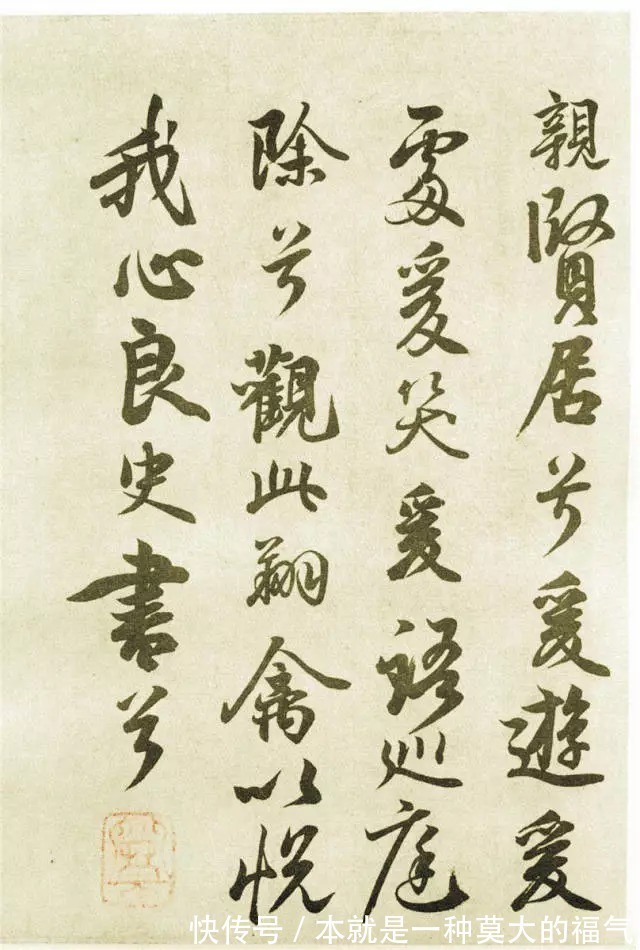 親賢居兮爰遊爰
處爰笑爰語巡庭
除兮觀此翔禽以悦
我心良史書兮
快传号/本就是一种莫大的福气